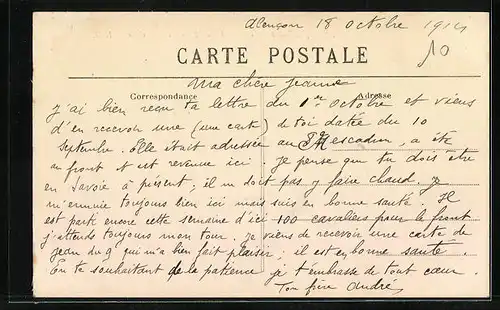 Alençon 18 Octobre 1914
10
CARTE POSTALE
Ma chère Jeanne
Correspondance Adresse
J'ai bien reçu ta lettre du 1er Octobre et viens
d'en recevoir une (une carte) de toi datée du 10
Septembre. Elle était adressée au escadron, a été
au front et est revenue ici. je pense que tu dois être
en Savoie à présent; il ne doit pas y faire chaud. Je
m'ennuie toujours bien ici mais suis en bonne santé. Il
est parti encore cette semaine d'ici 100 cavaliers pour le front
j'attends toujours mon tour. Je viens de recevoir une carte de
Jean du 9 qui m'a bien fait plaisir; il est en bonne santé.
En te souhaitant de la patience je t'embrasse de tout cœur.
Ton frère André